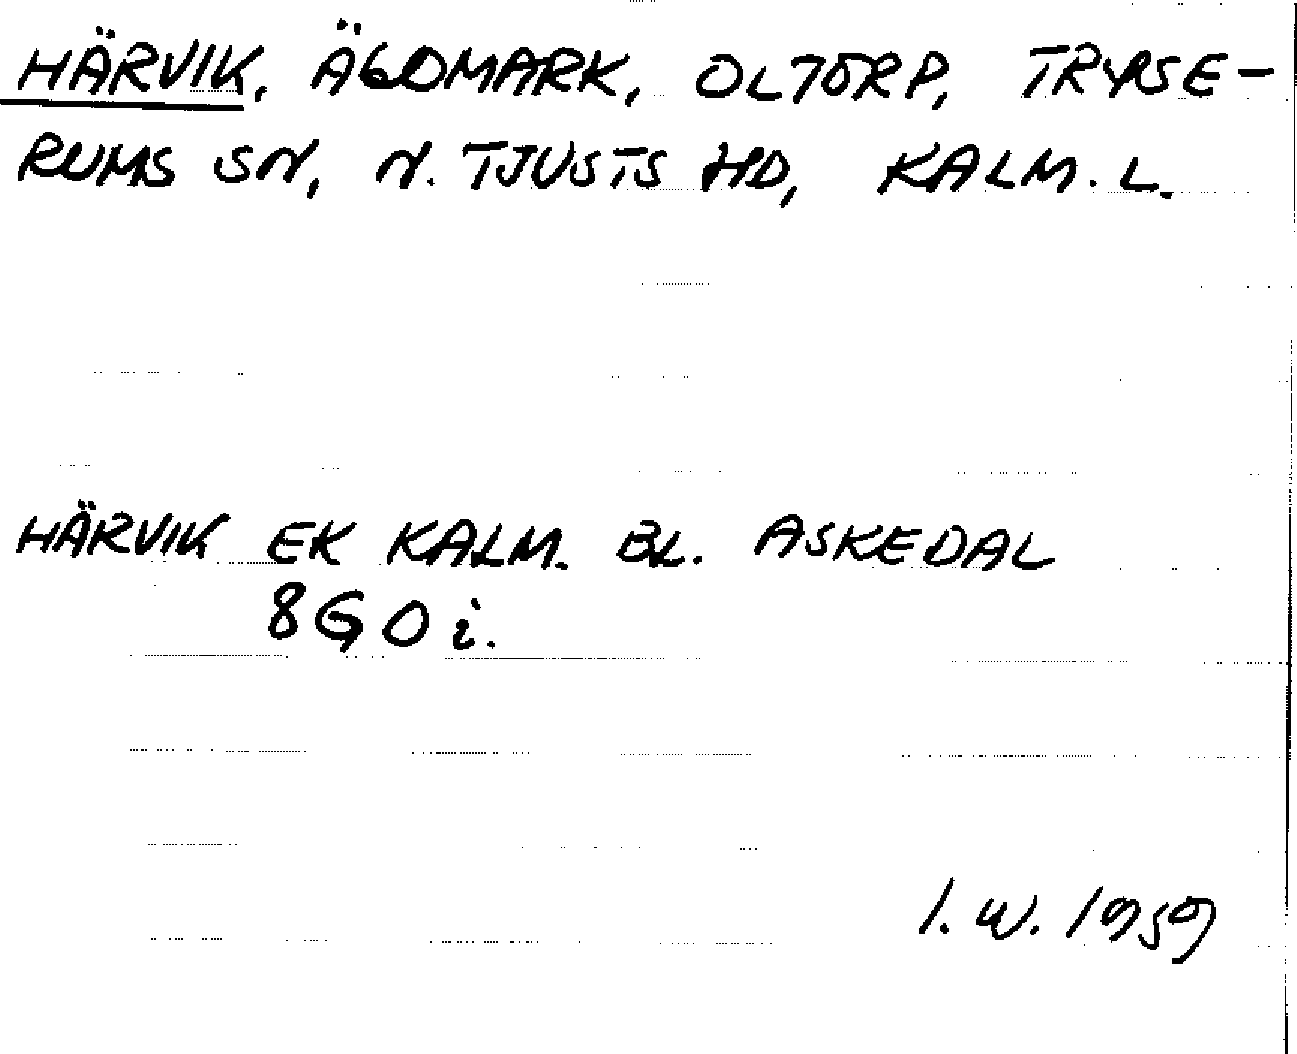 HÄRVIK, ÄGOMARK, OLTORP, TRYSE-
RUMS SN, N. TJUSTS HD, KALM. L.
HÄRVIK EK KALM. BL. ASKEDAL
8G0i.
I. W. 1959